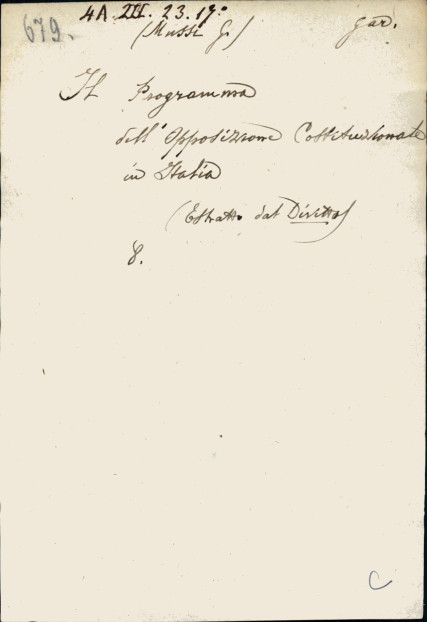 679.
4A. III. 23. 19°
(Mussi G.) gar.
Il Programma
dell' Opposizione Costituzionale
in Italia
(Estratto dal Diritto)
8.
C